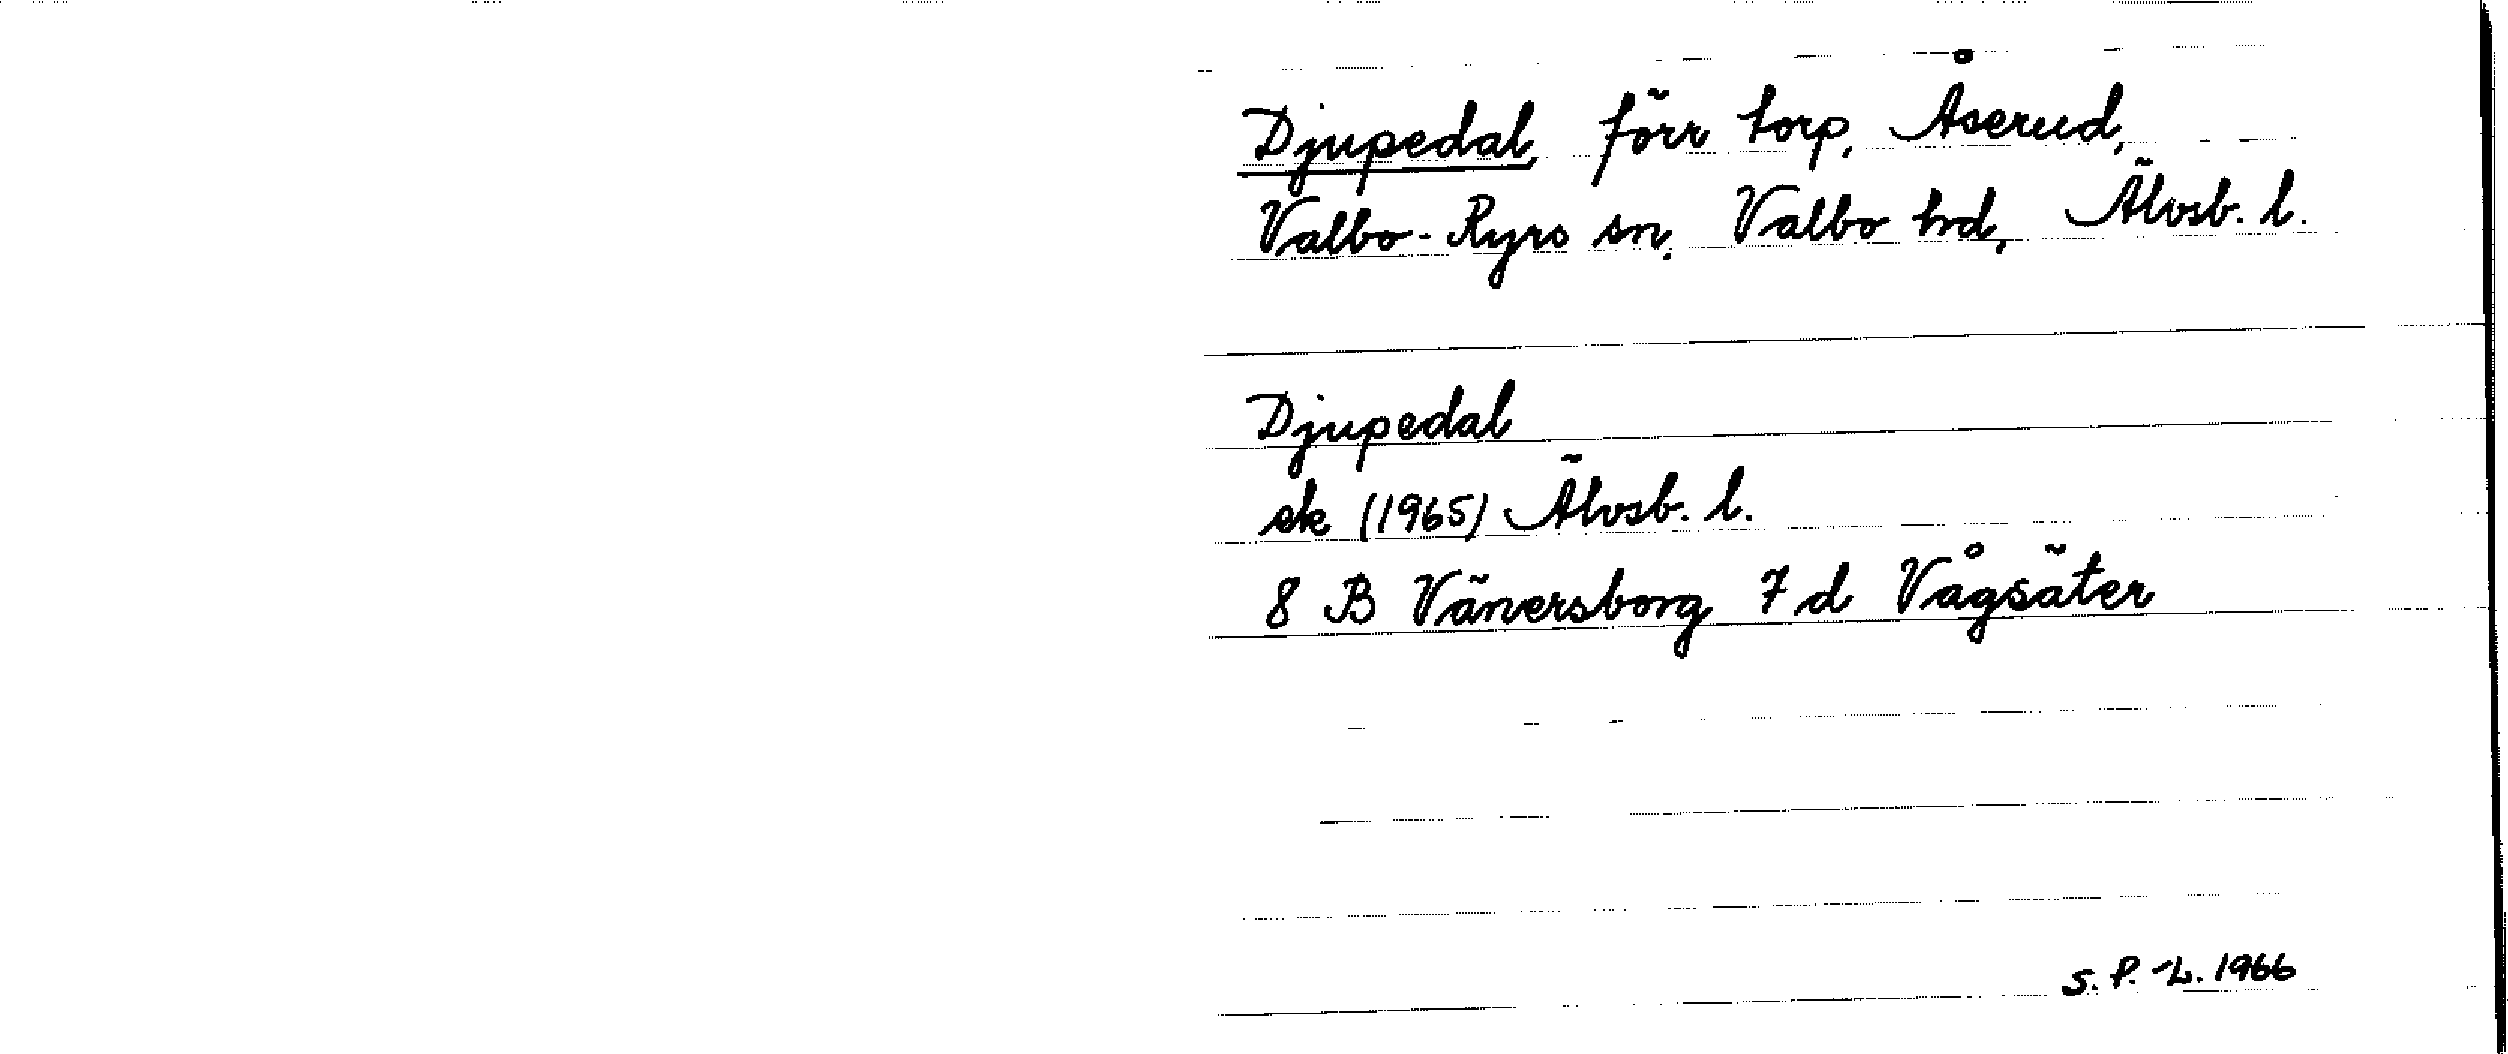 Djupedal, förr torp, Åserud,
Valbo-Ryrs sn, Valbo hd, Älvsb. l.
Djupedal
ek (1965) Älvsb. l.
8 B Vänersborg 7 d Vågsäter
S. P.-L. 1966